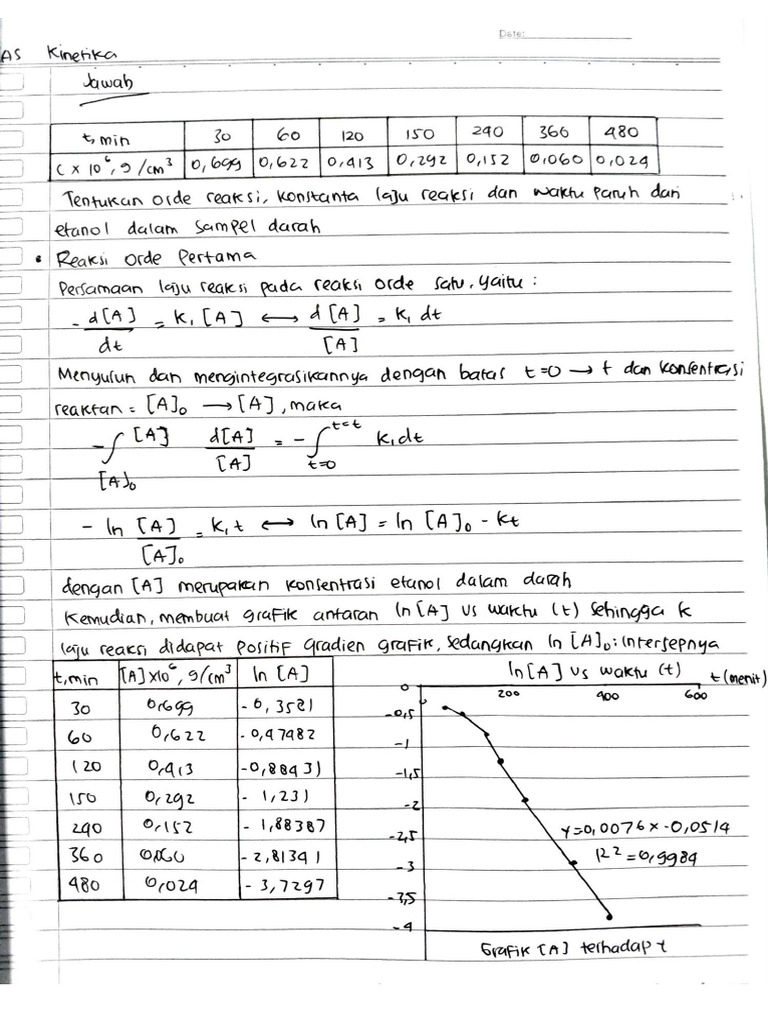 Date:
AS Kinetika
Jawab
t, min 30 60 120 150 240 360 480
C x 10⁶, g/cm³ 0,699 0,622 0,413 0,292 0,152 0,060 0,024
Tentukan orde reaksi, konstanta laju reaksi dan waktu paruh dari
etanol dalam sampel darah
• Reaksi Orde Pertama
Persamaan laju reaksi pada reaksi orde satu, yaitu :
- d[A]/dt = K₁ [A] ⟷ d[A]/[A] = K₁ dt
Menyusun dan mengintegrasikannya dengan batas t=0 → t dan konsentrasi
reaktan = [A]₀ → [A], maka
-∫ [A]₀ [A] d[A]/[A] = -∫ t=0 t=t K₁dt
- ln [A]/[A]₀ = K₁t ⟷ ln [A] = ln [A]₀ - Kt
dengan [A] merupakan konsentrasi etanol dalam darah
Kemudian, membuat grafik antaran ln [A] vs waktu (t) sehingga k
laju reaksi didapat positif gradien grafik, sedangkan ln [A]₀ : intersepnya
t, min [A]x10⁶, g/cm³ ln [A]
30 0,699 -0,3581
60 0,622 -0,47482
120 0,413 -0,88431
150 0,292 -1,231
240 0,152 -1,88387
360 0,060 -2,81341
480 0,024 -3,7297
ln [A] vs waktu (t)
t (menit)
0 200 400 600
-0,5
-1
-1,5
-2
-2,5
-3
-3,5
-4
y=0,0076x -0,0514
R2 =0,9984
Grafik [A] terhadap t